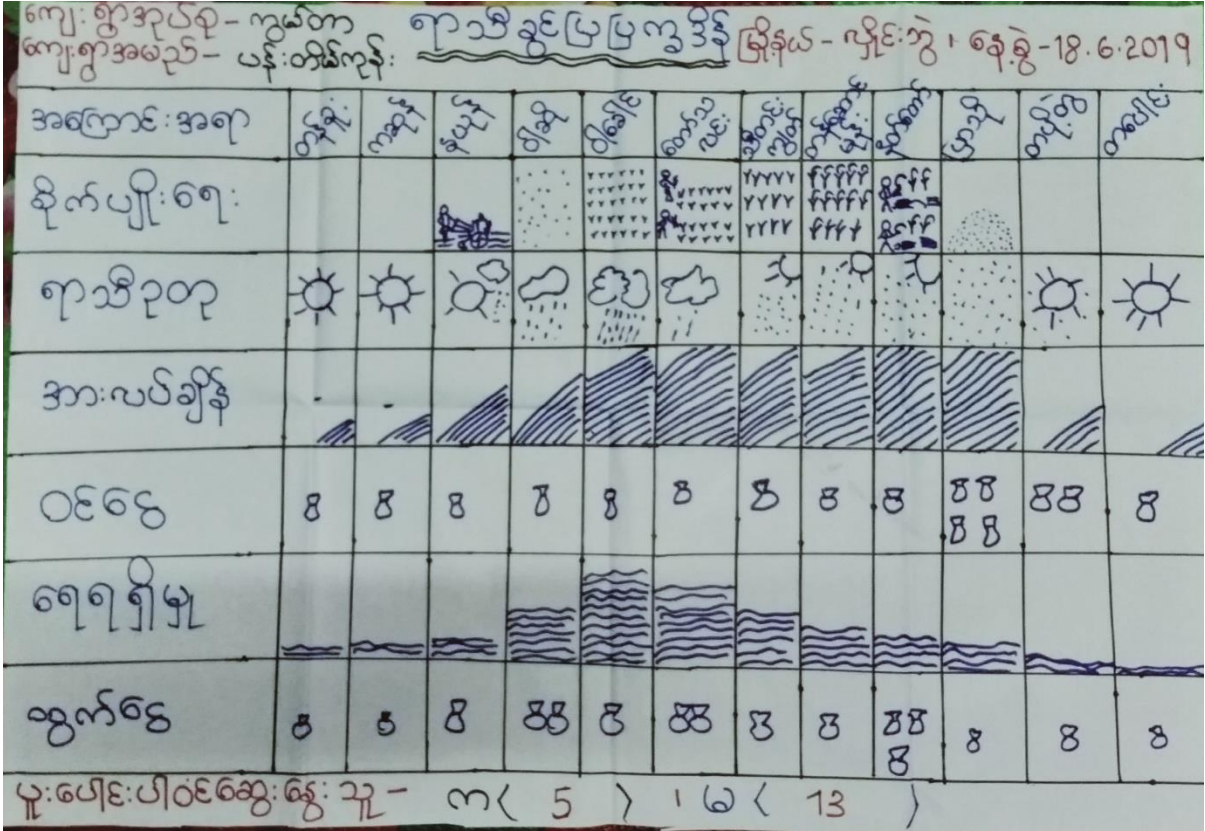 ကျေးရွာအုပ်စု - ကွမ်တာ
ရာသီခွင်ပြပြက္ခဒိန်
မြို့နယ် - လှိုင်းဘွဲ၊ နေ့စွဲ - 18.6.2019
ကျေးရွာအမည် - ပန်းတိမ်ကုန်း
အကြောင်းအရာ တန်ခူး ကဆုန် နယုန် ဝါဆို ဝါခေါင် တော်သလင်း သီတင်းကျွတ် တန်ဆောင်မုန်း နတ်တော် ပြာသို တပို့တွဲ တပေါင်း
စိုက်ပျိုးရေး
ရာသီဥတု
အားလပ်ချိန်
ဝင်ငွေ 8 8 8 8 8 8 8 8 8 88 88 88 8
ရေရရှိမှု
ထွက်ငွေ 8 8 8 88 8 88 8 8 88 8 8 8 8
ပူးပေါင်းပါဝင်ဆွေးနွေးသူ - က ( 5 ) ၊ မ ( 13 )